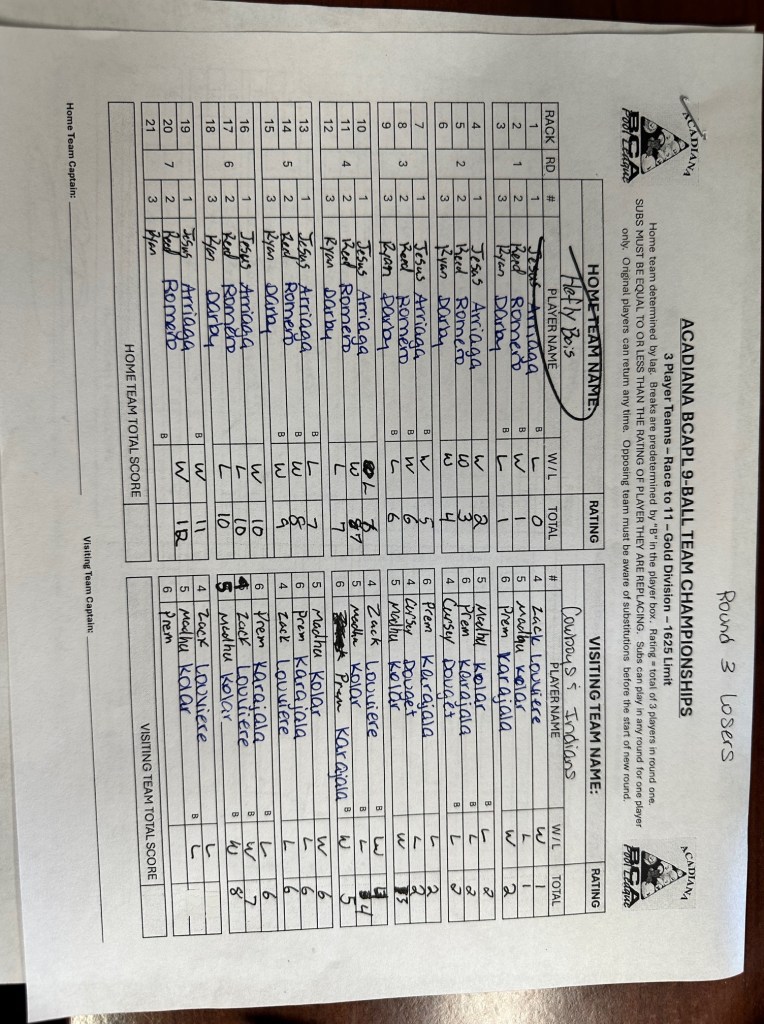 Round 3 Losers
ACADIANA
BCA
Pool League
ACADIANA BCAPL 9-BALL TEAM CHAMPIONSHIPS
3 Player Teams – Race to 11 – Gold Division – 1625 Limit
ACADIANA
BCA
Pool League
Home team determined by lag. Breaks are predetermined by "B" in the player box. Rating = total of 3 players in round one.
SUBS MUST BE EQUAL TO OR LESS THAN THE RATING OF PLAYER THEY ARE REPLACING. Subs can play in any round for one player
only. Original players can return any time. Opposing team must be aware of substitutions before the start of new round.
HOME TEAM NAME: RATING VISITING TEAM NAME: RATING
Hefly Bois Cowboys & Indians
RACK RD # PLAYER NAME W/L TOTAL # PLAYER NAME W/L TOTAL
1 1 Jesus Arriaga B L 0 4 Zack Louviere W 1
2 1 2 Reed Romero W 1 5 Madhu Kolar L 1
3 3 Ryan Darby B L 1 6 Prem Karajala W 2
4 1 Jesus Arriaga W 2 5 Madhu Kolar B L 2
5 2 2 Reed Romero W 3 6 Prem Karajala L 2
6 3 Ryan Darby W 4 4 Cursey Douget B L 2
7 1 Jesus Arriaga B W 5 6 Prem Karajala L 2
8 3 2 Reed Romero B W 6 4 Cursey Douget L 2
9 3 Ryan Darby B L 6 5 Madhu Kolar W 3
10 1 Jesus Arriaga L 6 4 Zack Louviere B W 4
11 4 2 Reed Romero W 7 5 Madhu Kolar B L 4
12 3 Ryan Darby L 7 6 Prem Karajala B W 5
13 1 Jesus Arriaga B L 7 5 Madhu Kolar W 6
14 5 2 Reed Romero W 8 6 Prem Karajala L 6
15 3 Ryan Darby B W 9 4 Zack Louviere L 6
16 1 Jesus Arriaga W 10 6 Prem Karajala B L 6
17 6 2 Reed Romero L 10 4 Zack Louviere B W 7
18 3 Ryan Darby L 10 5 Madhu Kolar B W 8
19 1 Jesus Arriaga B W 11 4 Zack Louviere L
20 7 2 Reed Romero W 12 5 Madhu Kolar B L
21 3 Ryan B 6 Prem
HOME TEAM TOTAL SCORE VISITING TEAM TOTAL SCORE
Home Team Captain: Visiting Team Captain: